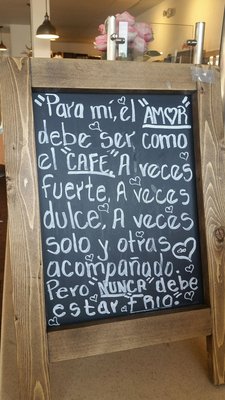 "Para mí, el "AMOR"
debe ser como
el "CAFÉ". A veces
fuerte, A veces
dulce, A veces
solo y otras
acompañado.
Pero "NUNCA" debe
estar FRIO".